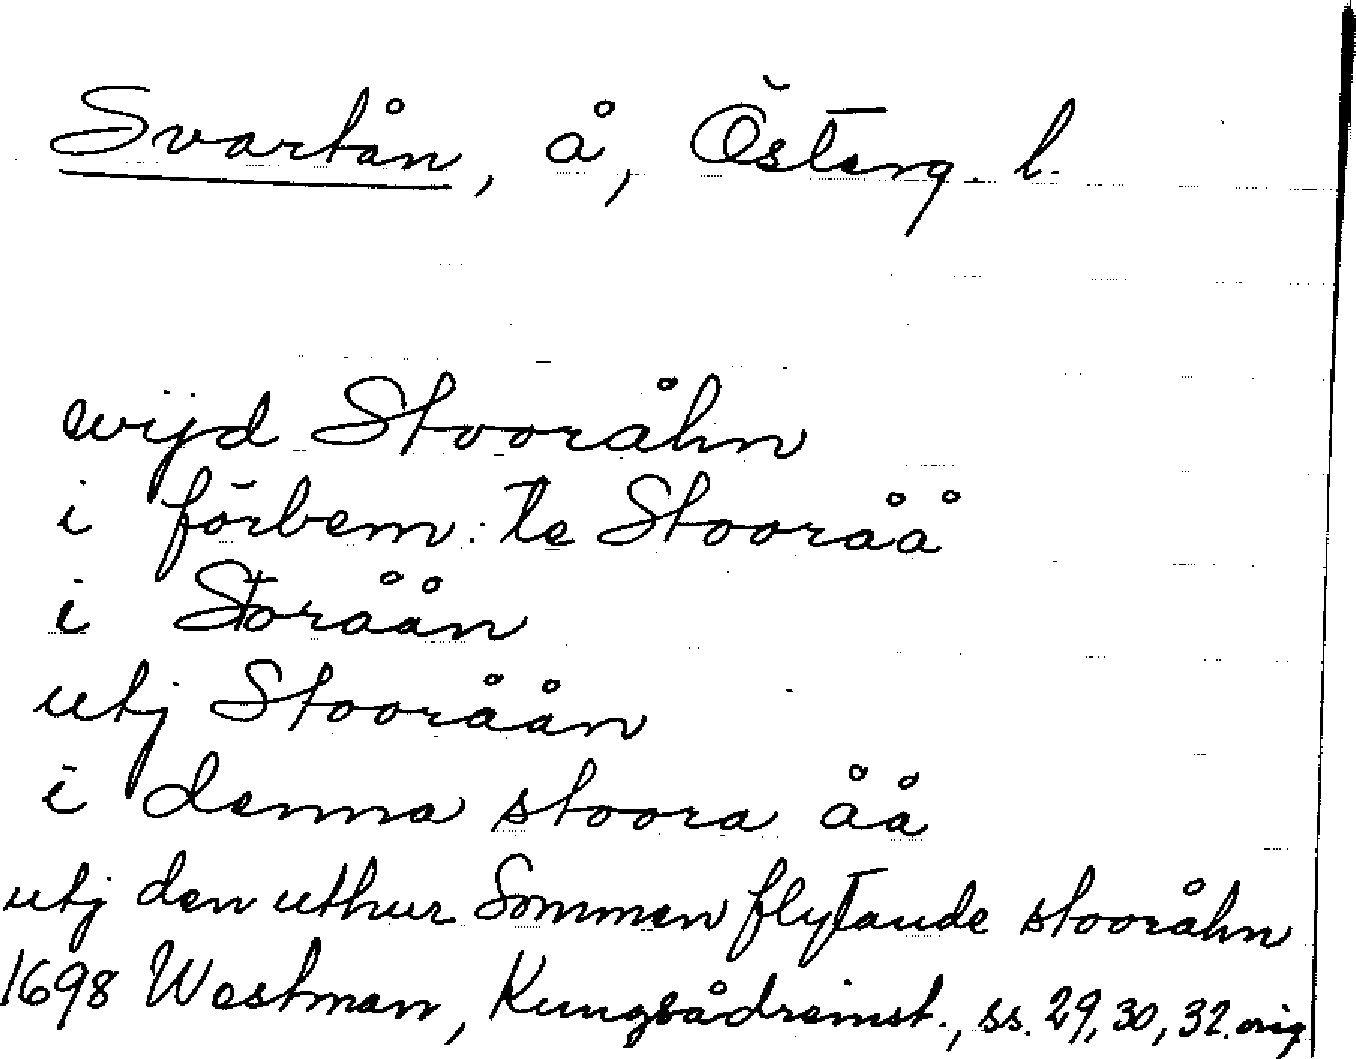 Svartån, å, Österg. l.
wijd Stooråhn
i förbem:te Stooråå
i Storåån
utj Stooråån
i denna stoora åå
utj den uthur Sommen flytande stooråhn
1698 Westman, Kungsådreinst., ss. 29, 30, 32. orig